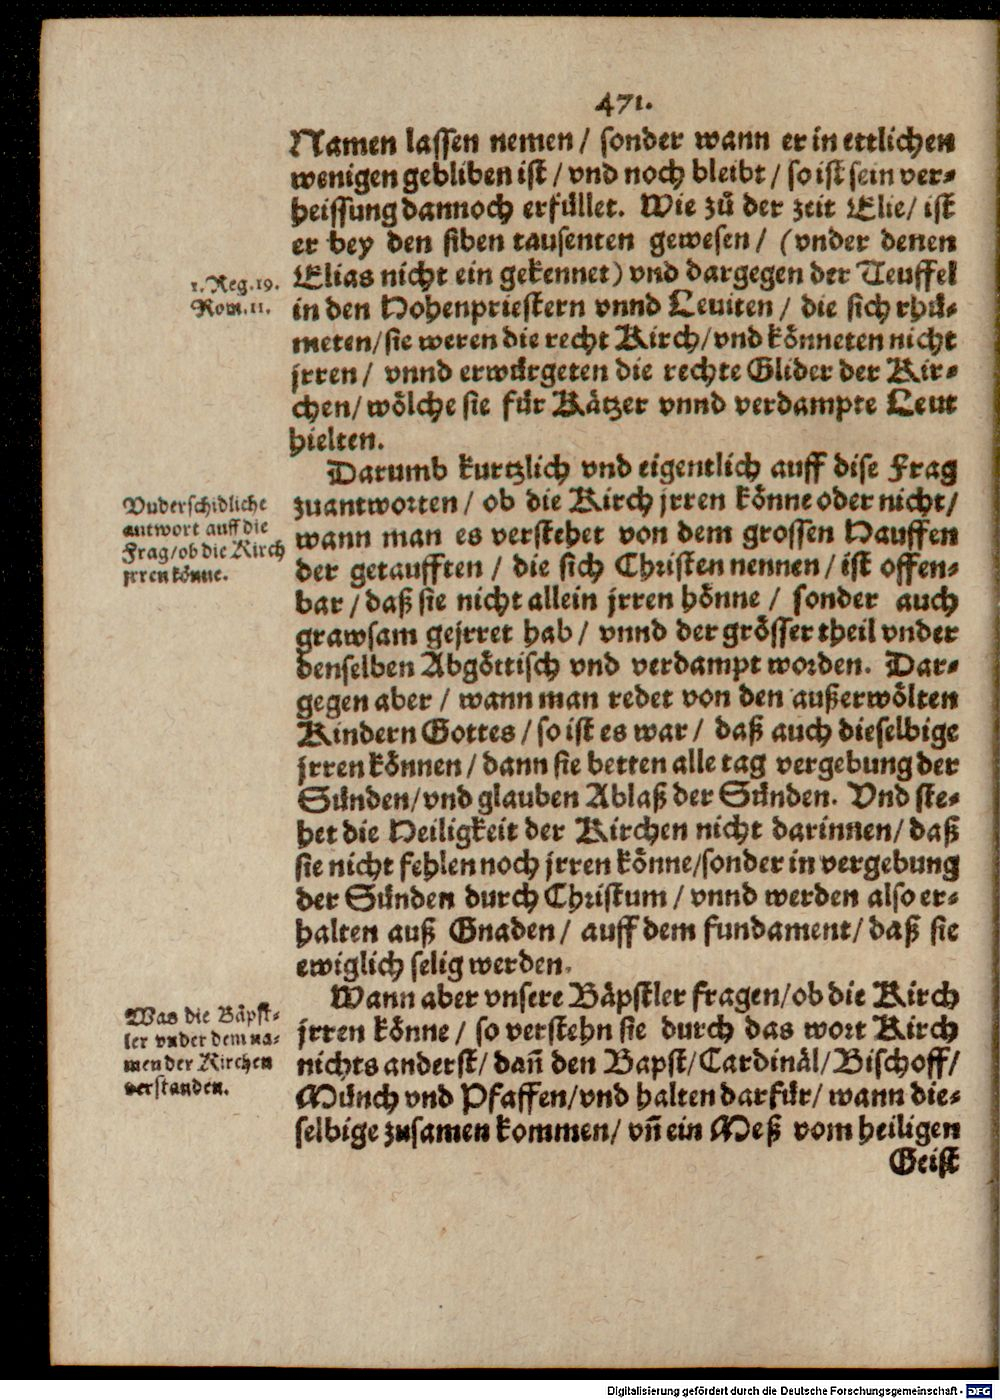 471.
Namen lassen nemen / sonder wann er in ettlichen
wenigen gebliben ist / vnd noch bleibt / so ist sein ver-
heissung dannoch erfüllet. Wie zů der zeit Elie / ist
er bey den siben tausenten gewesen / (vnder denen
1. Reg. 19.
Rom. 11.
Elias nicht ein gekennet) vnd dargegen der Teuffel
in den Hohenpriestern vnnd Leuiten / die sich rhü-
meten / sie weren die recht Kirch / vnd könneten nicht
jrren / vnnd erwürgeten die rechte Glider der Kir-
chen / wölche sie für Kätzer vnnd verdampte Leut
hielten.
Darumb kurtzlich vnd eigentlich auff dise Frag
Vnderschidliche
antwort auff die
Frag / ob die Kirch
jrren könne.
zuantworten / ob die Kirch jrren könne oder nicht /
wann man es verstehet von dem grossen Hauffen
der getaufften / die sich Christen nennen / ist offen-
bar / daß sie nicht allein jrren hönne / sonder auch
grawsam gejrret hab / vnnd der grösser theil vnder
denselben Abgöttisch vnd verdampt worden. Dar-
gegen aber / wann man redet von den außerwölten
Kindern Gottes / so ist es war / daß auch dieselbige
jrren können / dann sie betten alle tag vergebung der
Sünden / vnd glauben Ablaß der Sünden. Vnd ste-
het die Heiligkeit der Kirchen nicht darinnen / daß
sie nicht fehlen noch jrren könne / sonder in vergebung
der Sünden durch Christum / vnnd werden also er-
halten auß Gnaden / auff dem fundament / daß sie
ewiglich selig werden.
Wann aber vnsere Bäpstler fragen / ob die Kirch
Was die Bäpst-
ler vnder dem na-
men der Kirchen
verstanden.
jrren könne / so verstehn sie durch das wort Kirch
nichts anderst / dañ den Bapst / Cardinäl / Bischoff /
Münch vnd Pfaffen / vnd halten darfür / wann die-
selbige zusamen kommen / vñ ein Meß vom heiligen
Geist
Digitalisierung gefördert durch die Deutsche Forschungsgemeinschaft - DFG